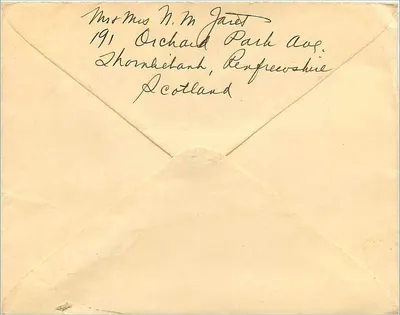 Mr & Mrs N. M. Jaret
191 Orchard Park Ave.
Thornliebank, Renfrewshire
Scotland